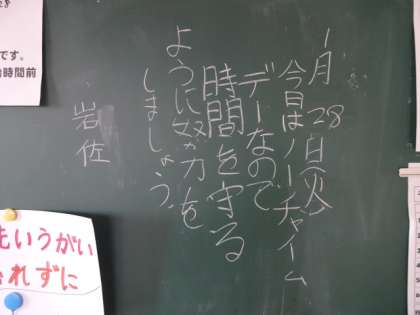 1月28日(火)
今日はノーチャイム
デーなので
時間を守る
ように努力を
しましょう。
岩佐
28
です。
時間前
もいうがい
れずに